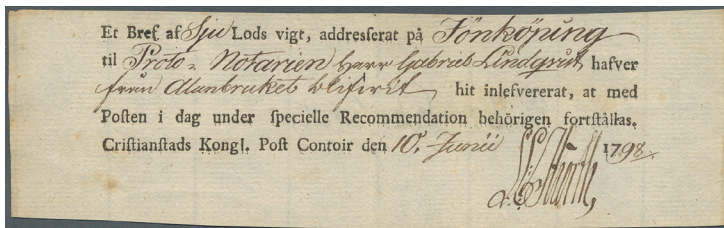 Et Bref af Sju Lods vigt, addresſerat på Jönköping
til Proto-Notarien Herr Gabriel Lindqvist hafver
från Alunbruket blifvit hit inleſvererat, at med
Poſten i dag under ſpecielle Recommendation behörigen fortſtållas.
Criſtianſtads Kongl. Poſt Contoir den 10. Junii 1798.